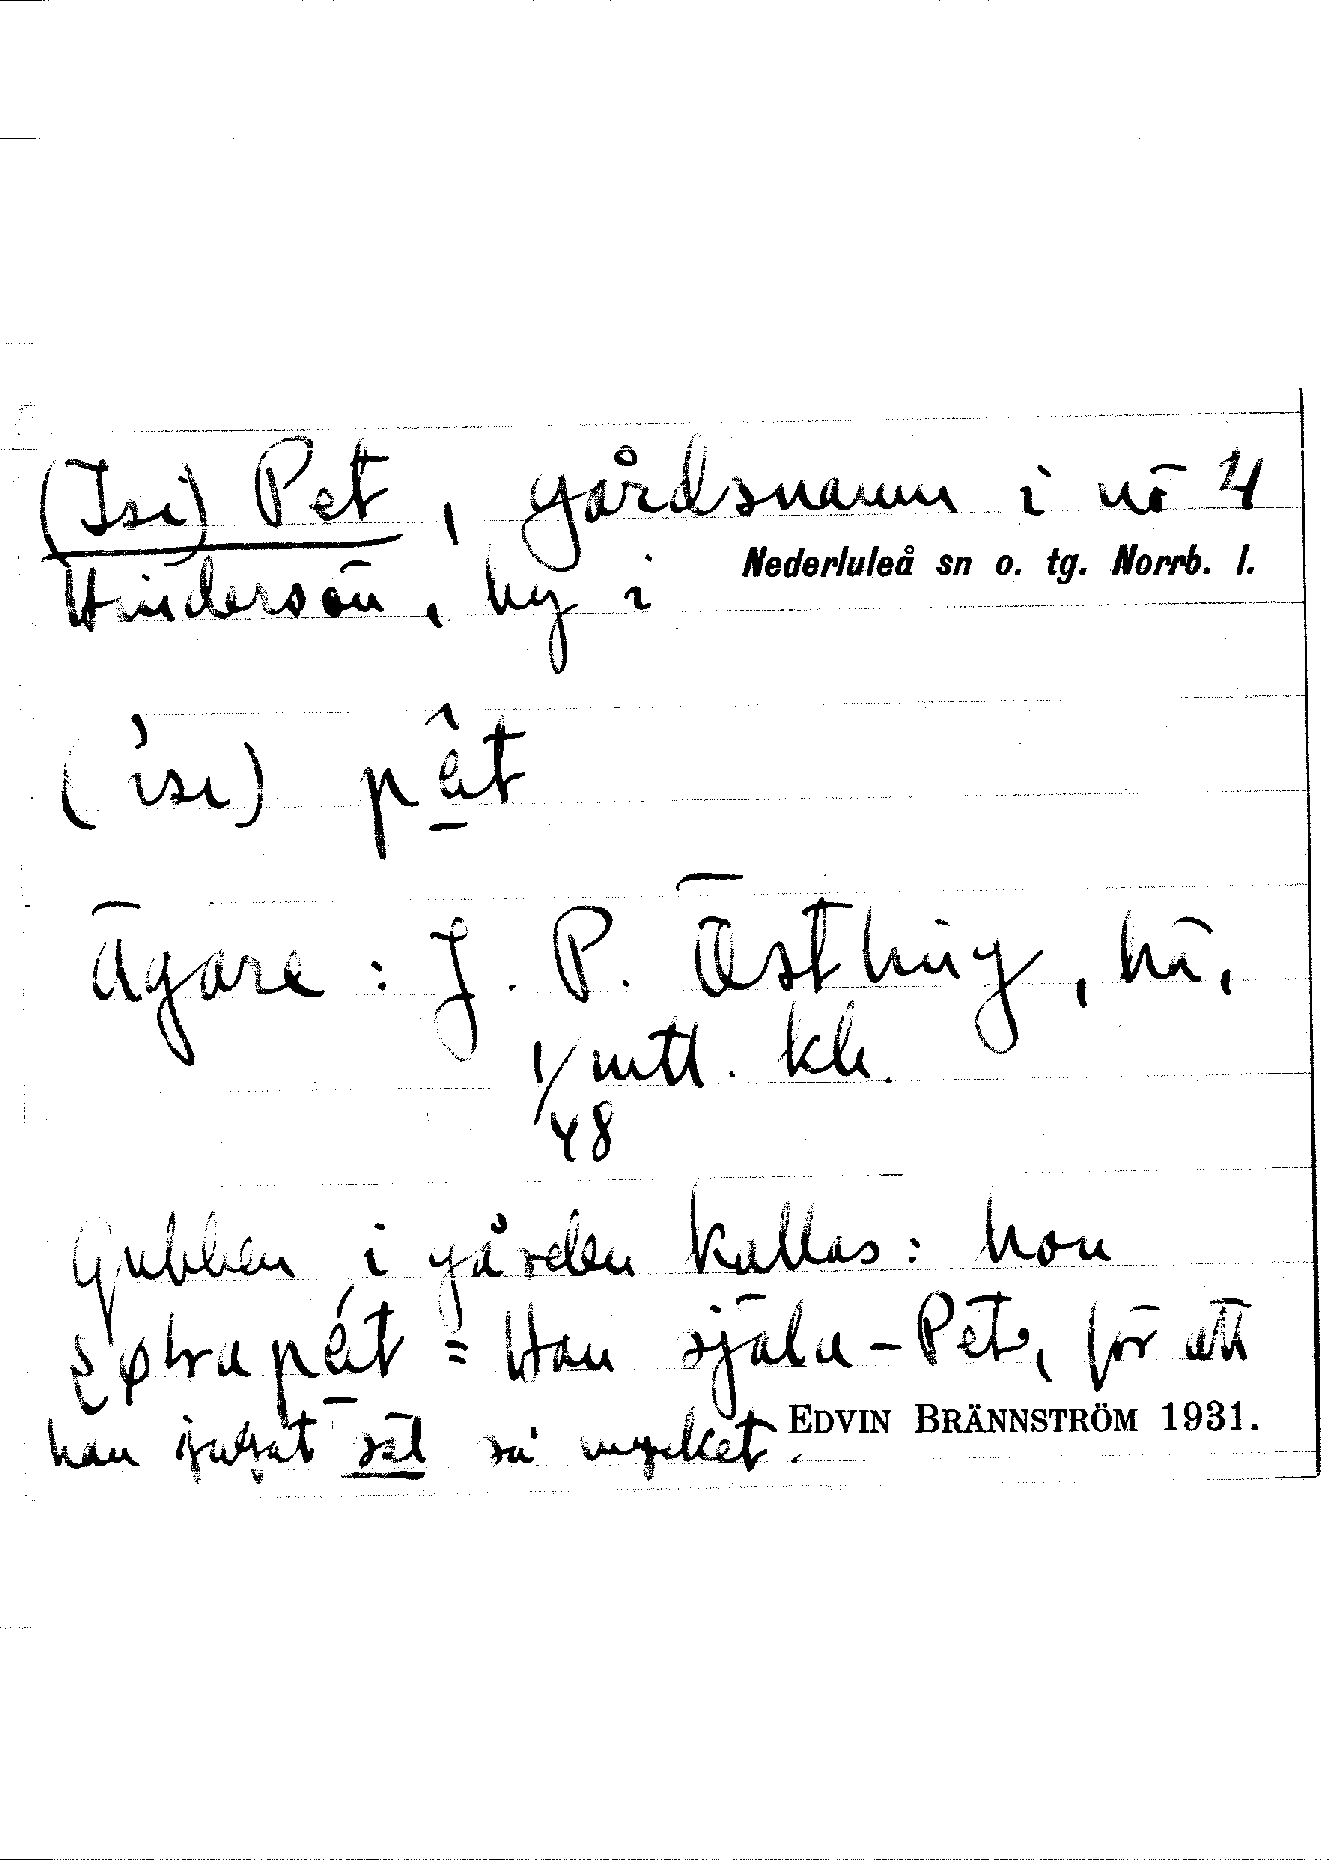 (Isi) Pet, gårdsnamn i nō 4
Hindersön, by i Nederluleå sn o. tg. Norrb. l.
(isi) pêt
Ägare: J. P. Östling, hā,
1/48 mtl. kh.
Gubben i gården kallas: hon
= Han själa-Pet, för att
han jagat säl så mycket.
EDVIN BRÄNNSTRÖM 1931.